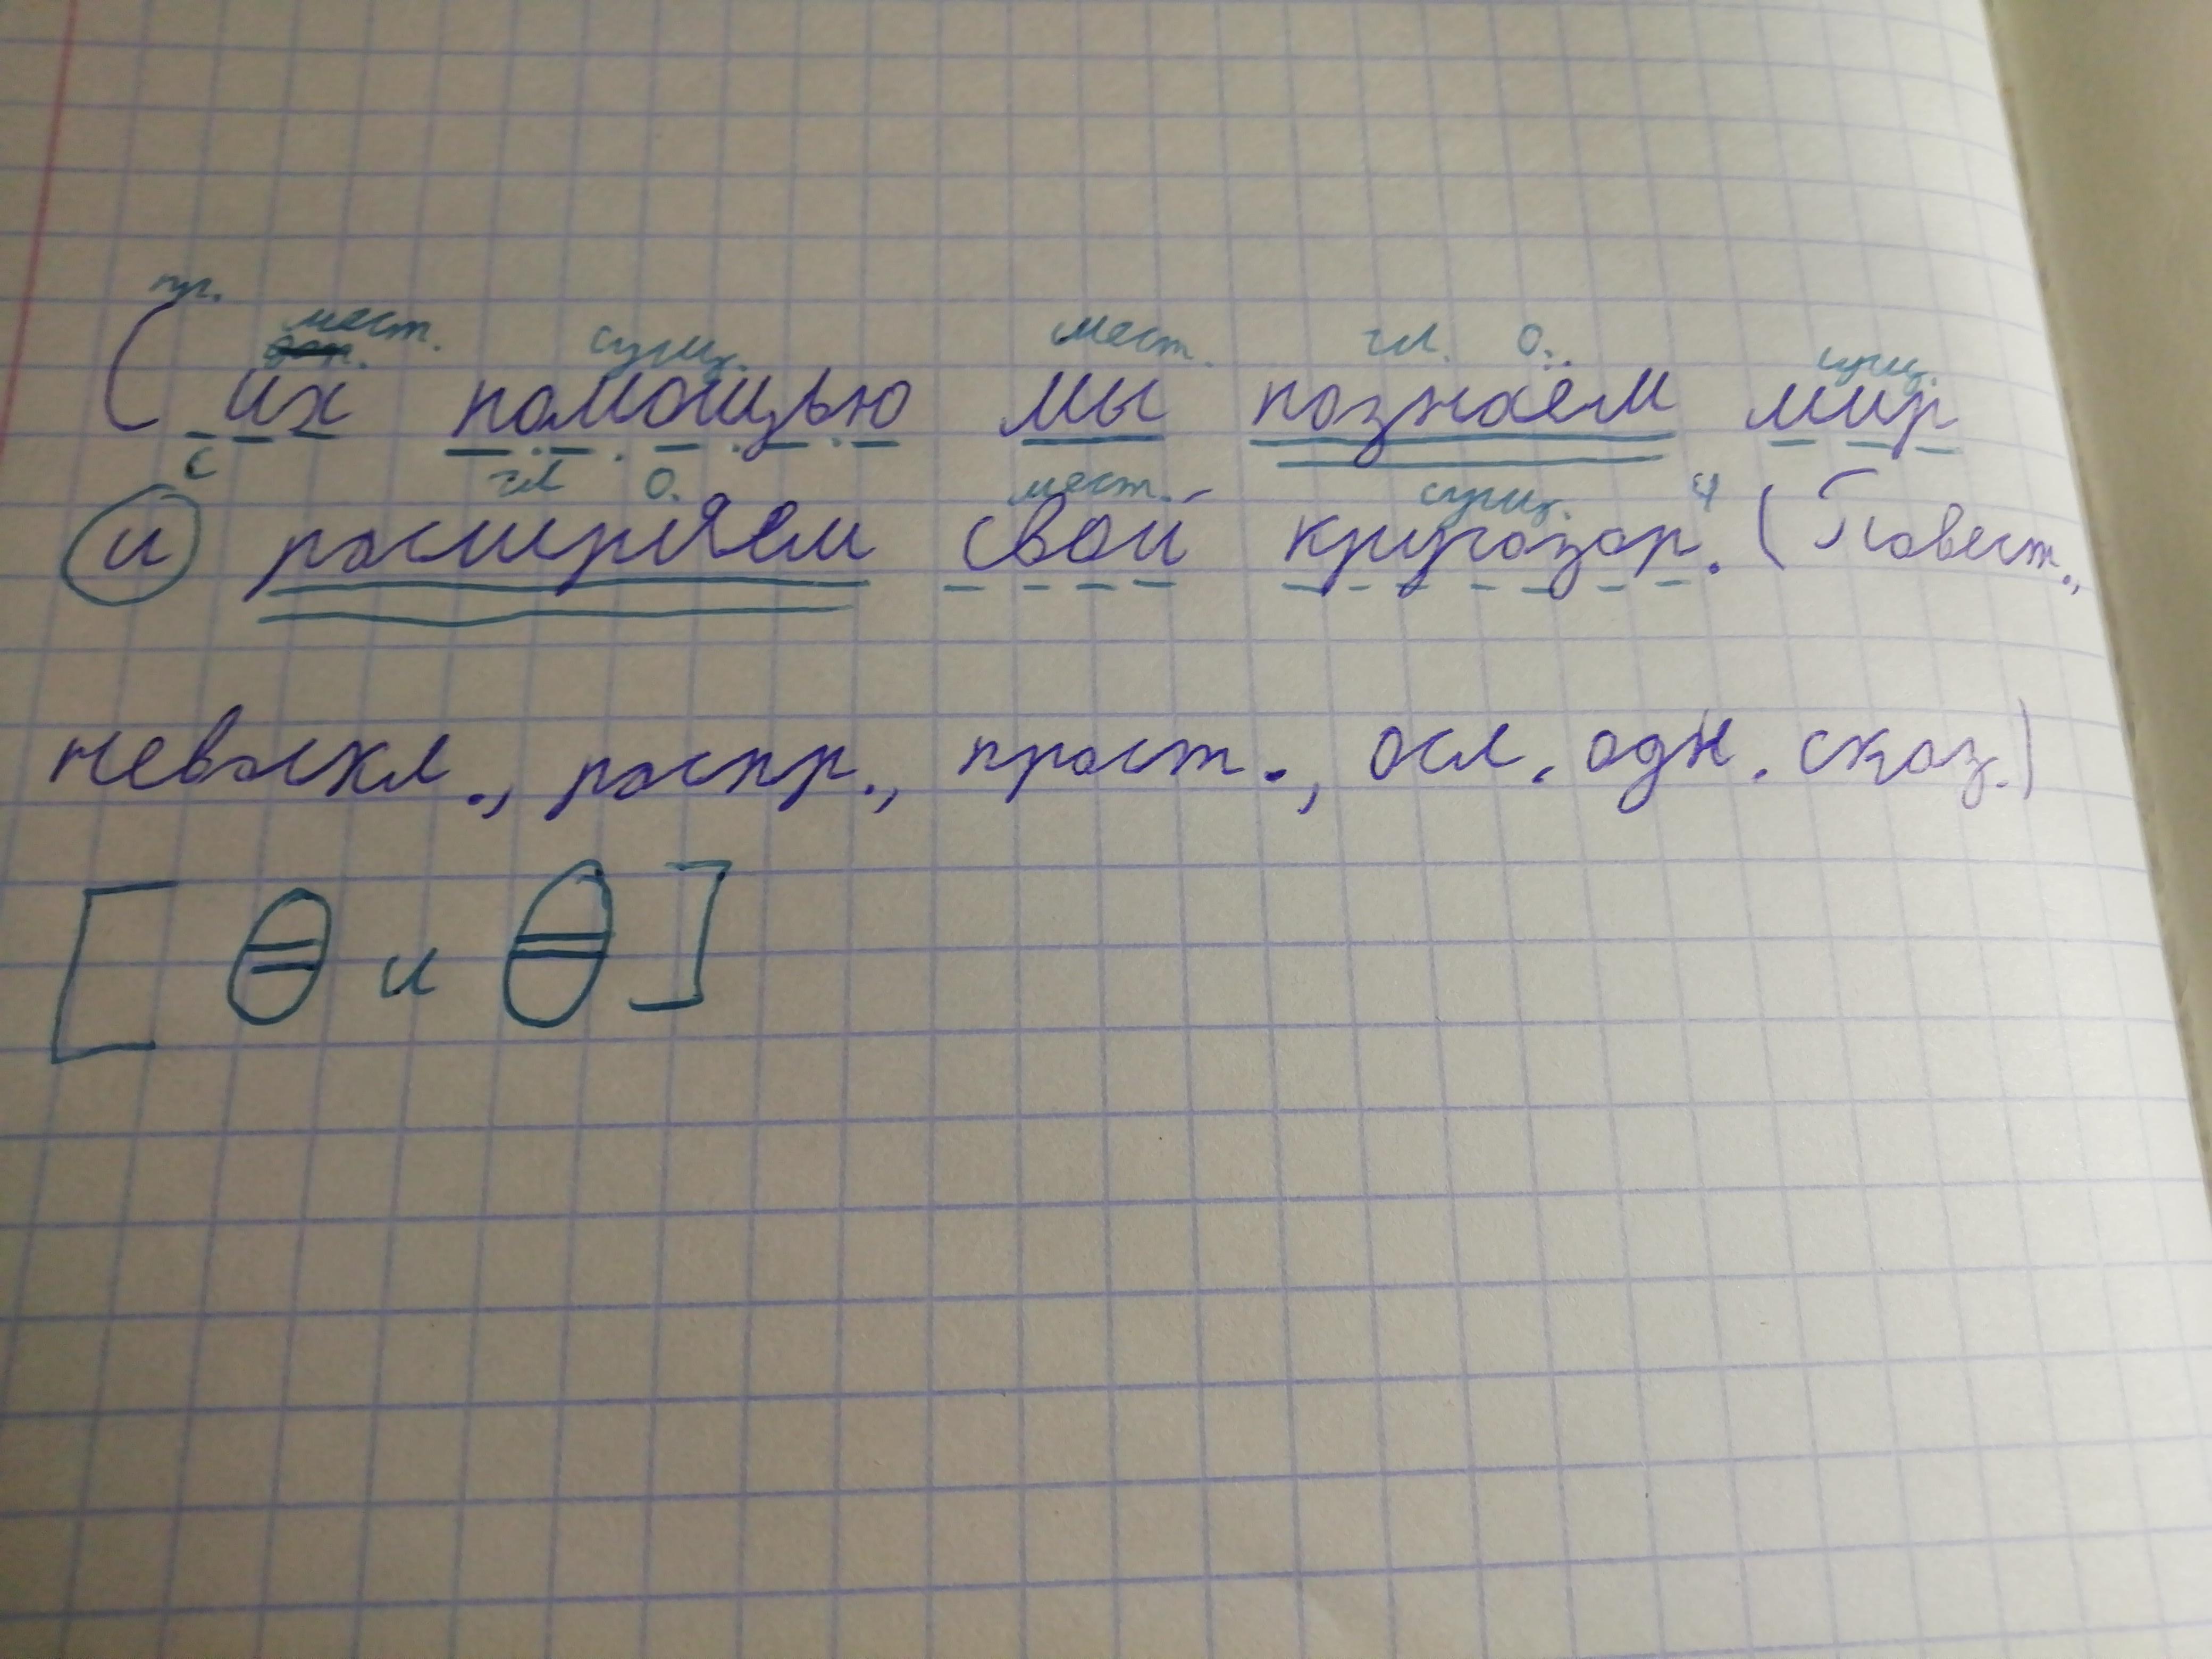 пр. мест. сущ. мест. гл. О. сущ.
С их помощью мы познаём мир
с гл О. мест. сущ. ч
и расширяем свой кругозор. (Повест.,
невоскл., распр., прост., осл. одн. сказ.)
[ и ]